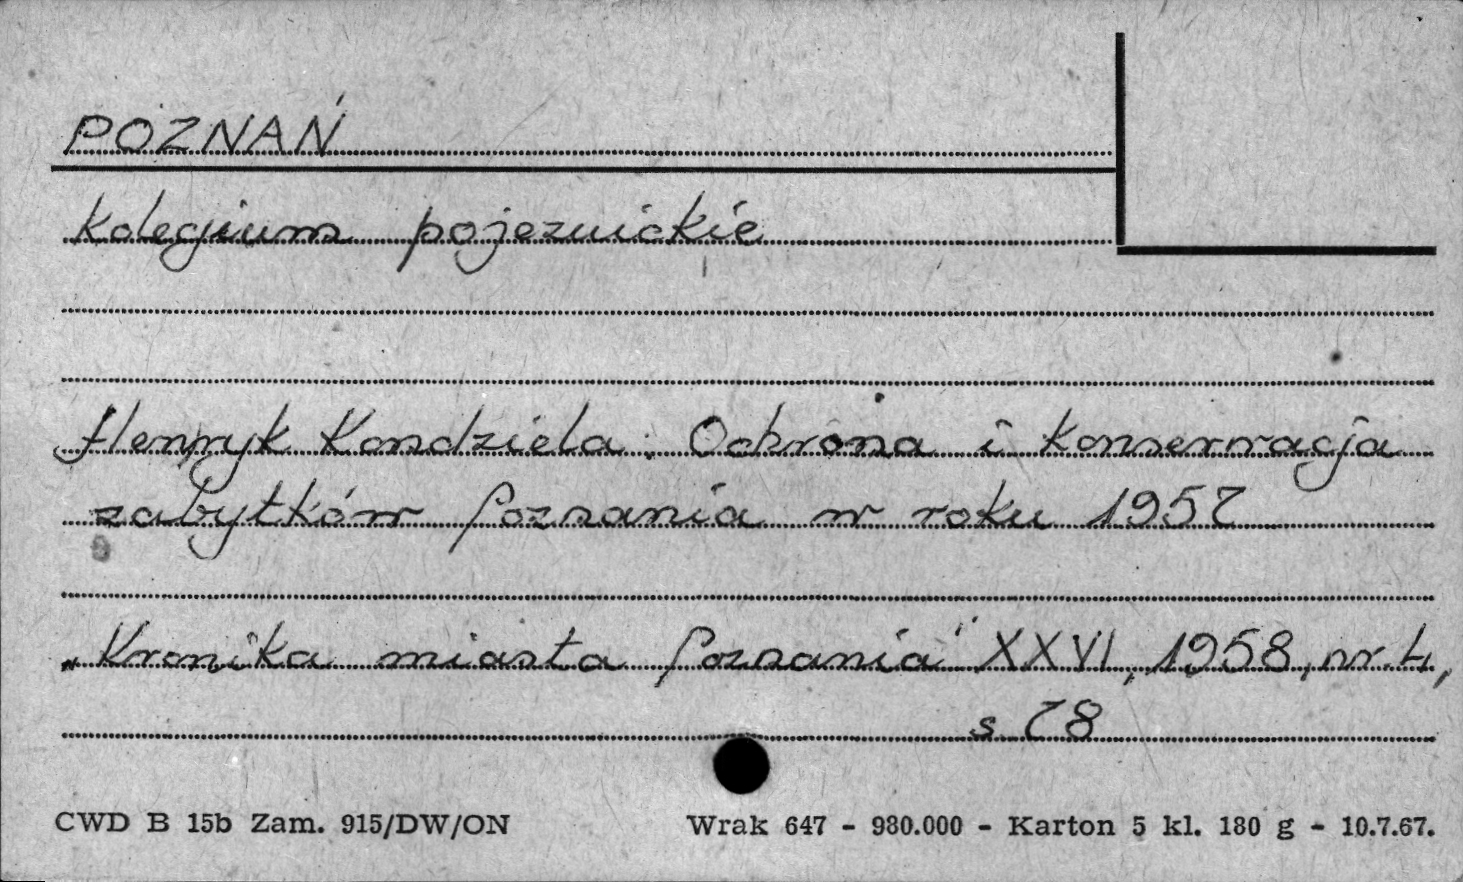 POZNAŃ
kolegium pojezuickie
Henryk Kondziela: Ochrona i konserwacja
zabytków Poznania w roku 1957
„Kronika miasta Poznania" XXVI, 1958, nr. 4,
s 78
CWD B 15b Zam. 915/DW/ON Wrak 647 - 980.000 - Karton 5 kl. 180 g - 10.7.67.